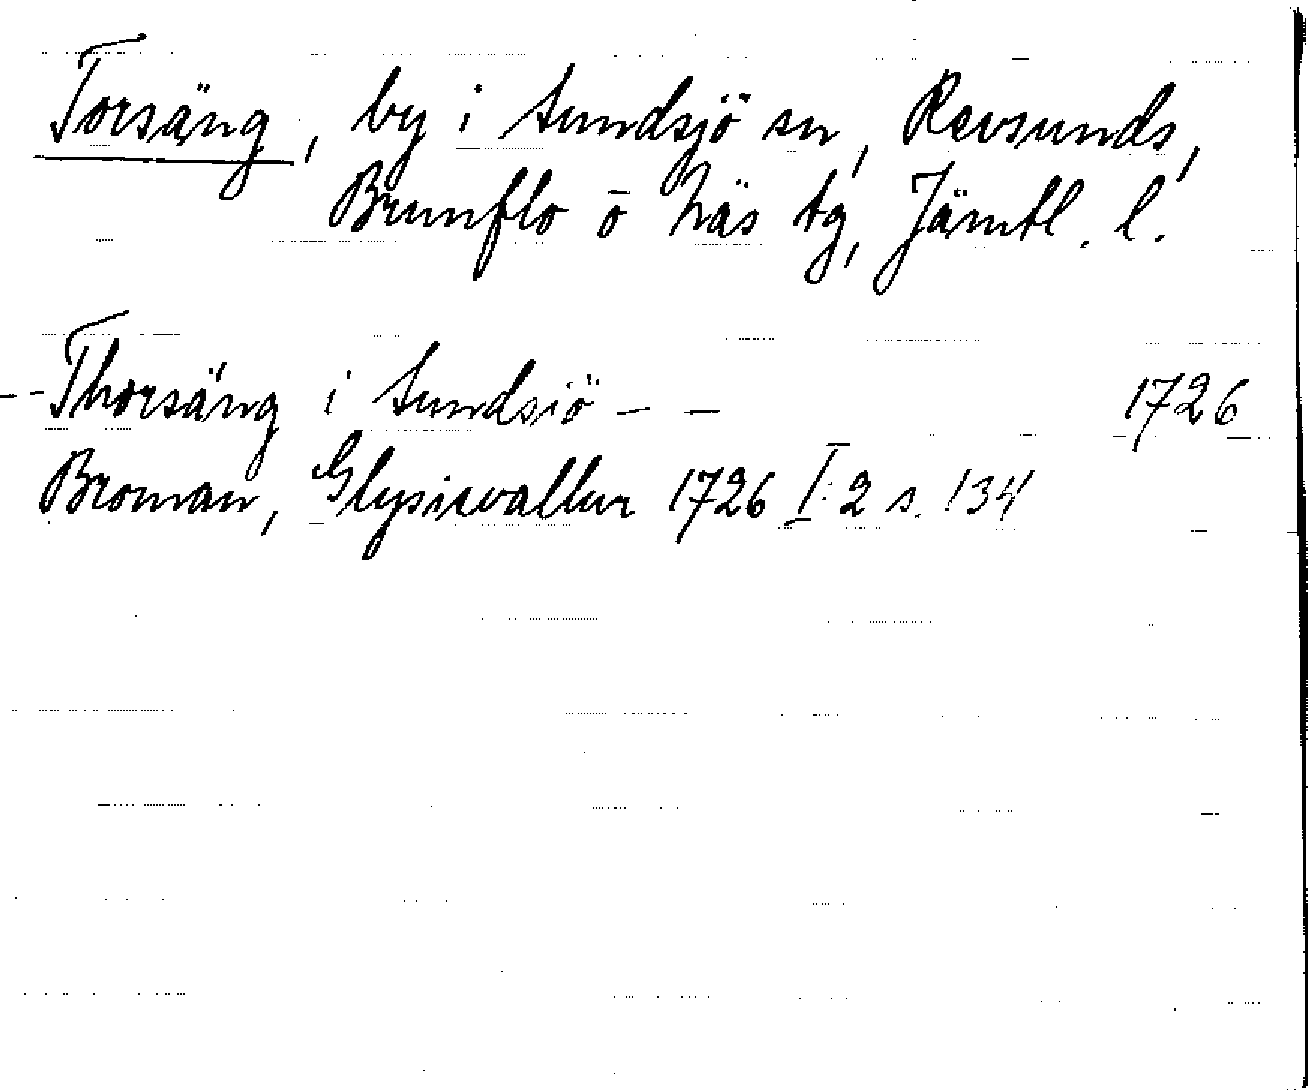 Torsäng, by i Sundsjö sn, Revsunds,
Brunflo o Näs tg, Jämtl. l.
- - Thorsäng i Sundsiö - - 1726
Broman, Glysisvallur 1726 I:2 s. 134